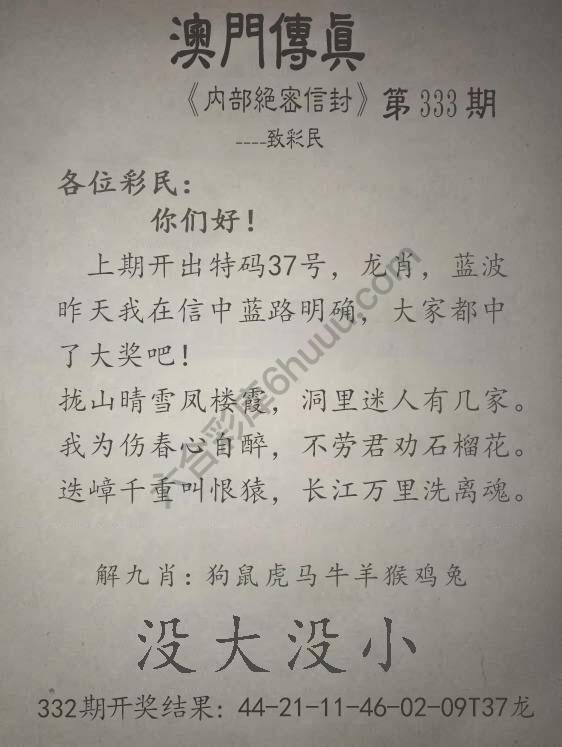 澳門傳眞
《内部絕密信封》第333期
----致彩民
各位彩民：
你们好！
上期开出特码37号，龙肖，蓝波
昨天我在信中蓝路明确，大家都中
了大奖吧！
拢山晴雪凤楼霞，洞里迷人有几家。
我为伤春心自醉，不劳君劝石榴花。
迭嶂千重叫恨猿，长江万里洗离魂。
解九肖：狗鼠虎马牛羊猴鸡兔
没大没小
332期开奖结果：44-21-11-46-02-09T37龙
六合彩库6huuu.com